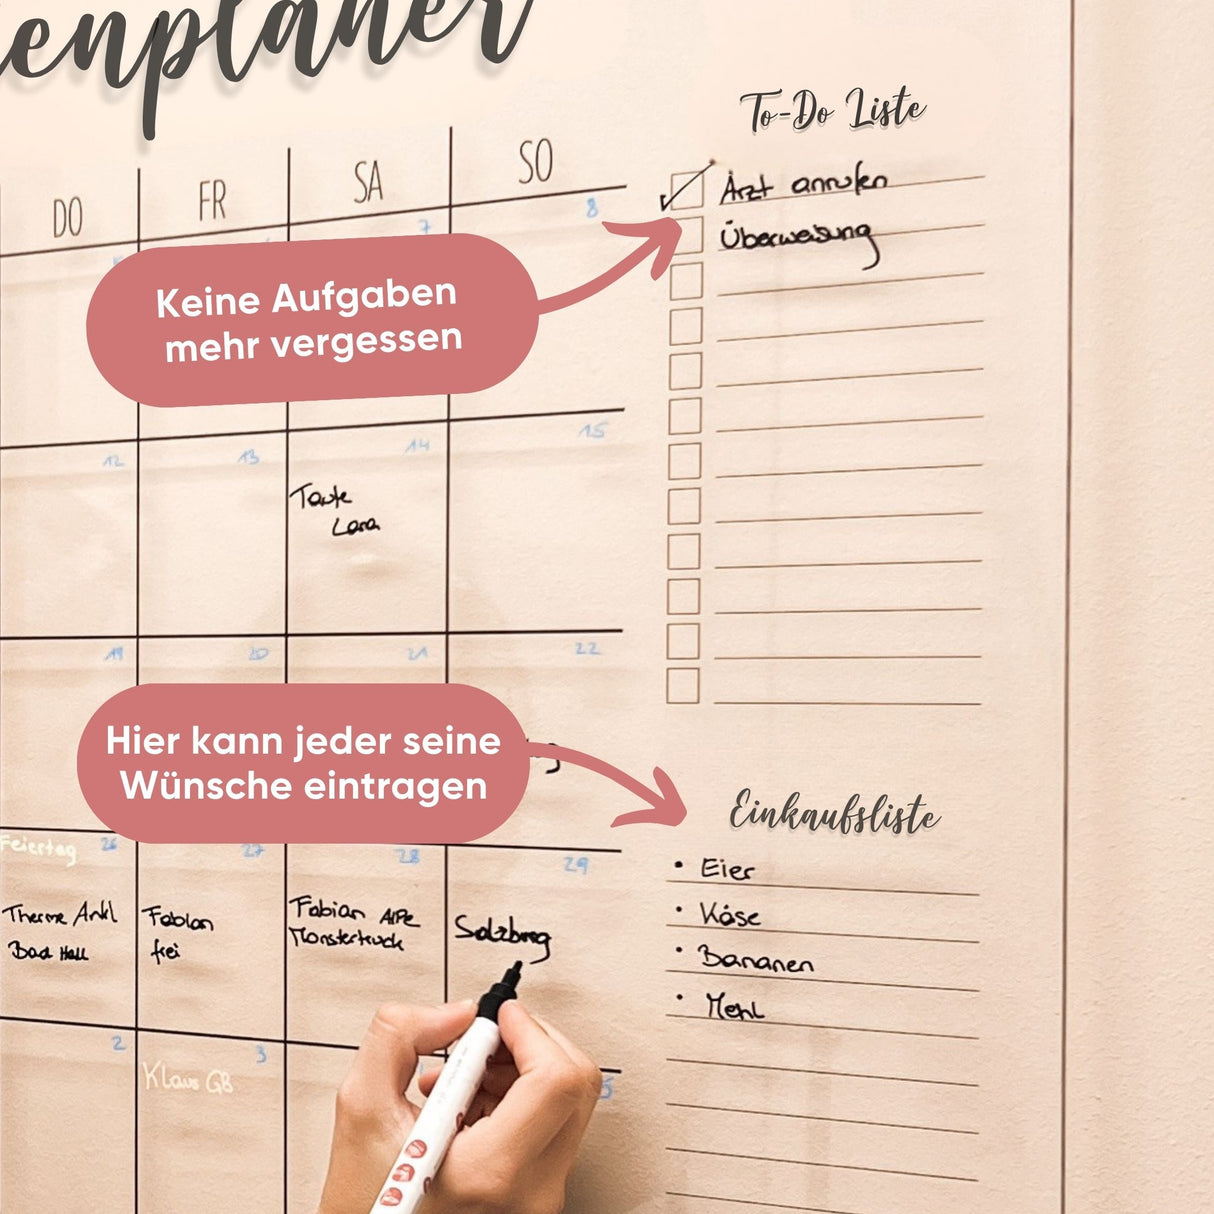 enplaner
To-Do Liste
DO FR SA SO
7 8
Arzt anrufen
Überweisung
Keine Aufgaben
mehr vergessen
12 13 14 15
Tante
Lara
19 20 21 22
Hier kann jeder seine
Wünsche eintragen
Einkaufsliste
Feiertag 26 27 28 29
Therme
Bad Hall
Fabian
frei
Fabian
Monstertruck
Salzburg
Eier
Käse
Bananen
Mehl
2 3 5
Klaus GB